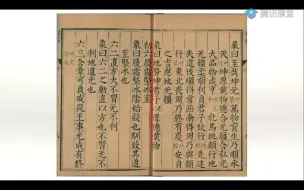 腾讯课堂
彖曰至哉坤元萬物資生乃順承
天坤厚載物德合无疆含弘光
大品物咸亨牝馬地類行地
无疆柔順利貞君子攸行先迷
失道後順得常西南得朋乃與類
行東北喪朋乃終有慶安貞
之吉應地无疆
象曰地勢坤君子以厚德載物
初六履霜堅冰至
象曰履霜堅冰陰始凝也馴致其道
至堅冰也
六二直方大不習无不利
象曰六二之動直以方也不習无不
利地道光也
六三含章可貞或從王事无成有終